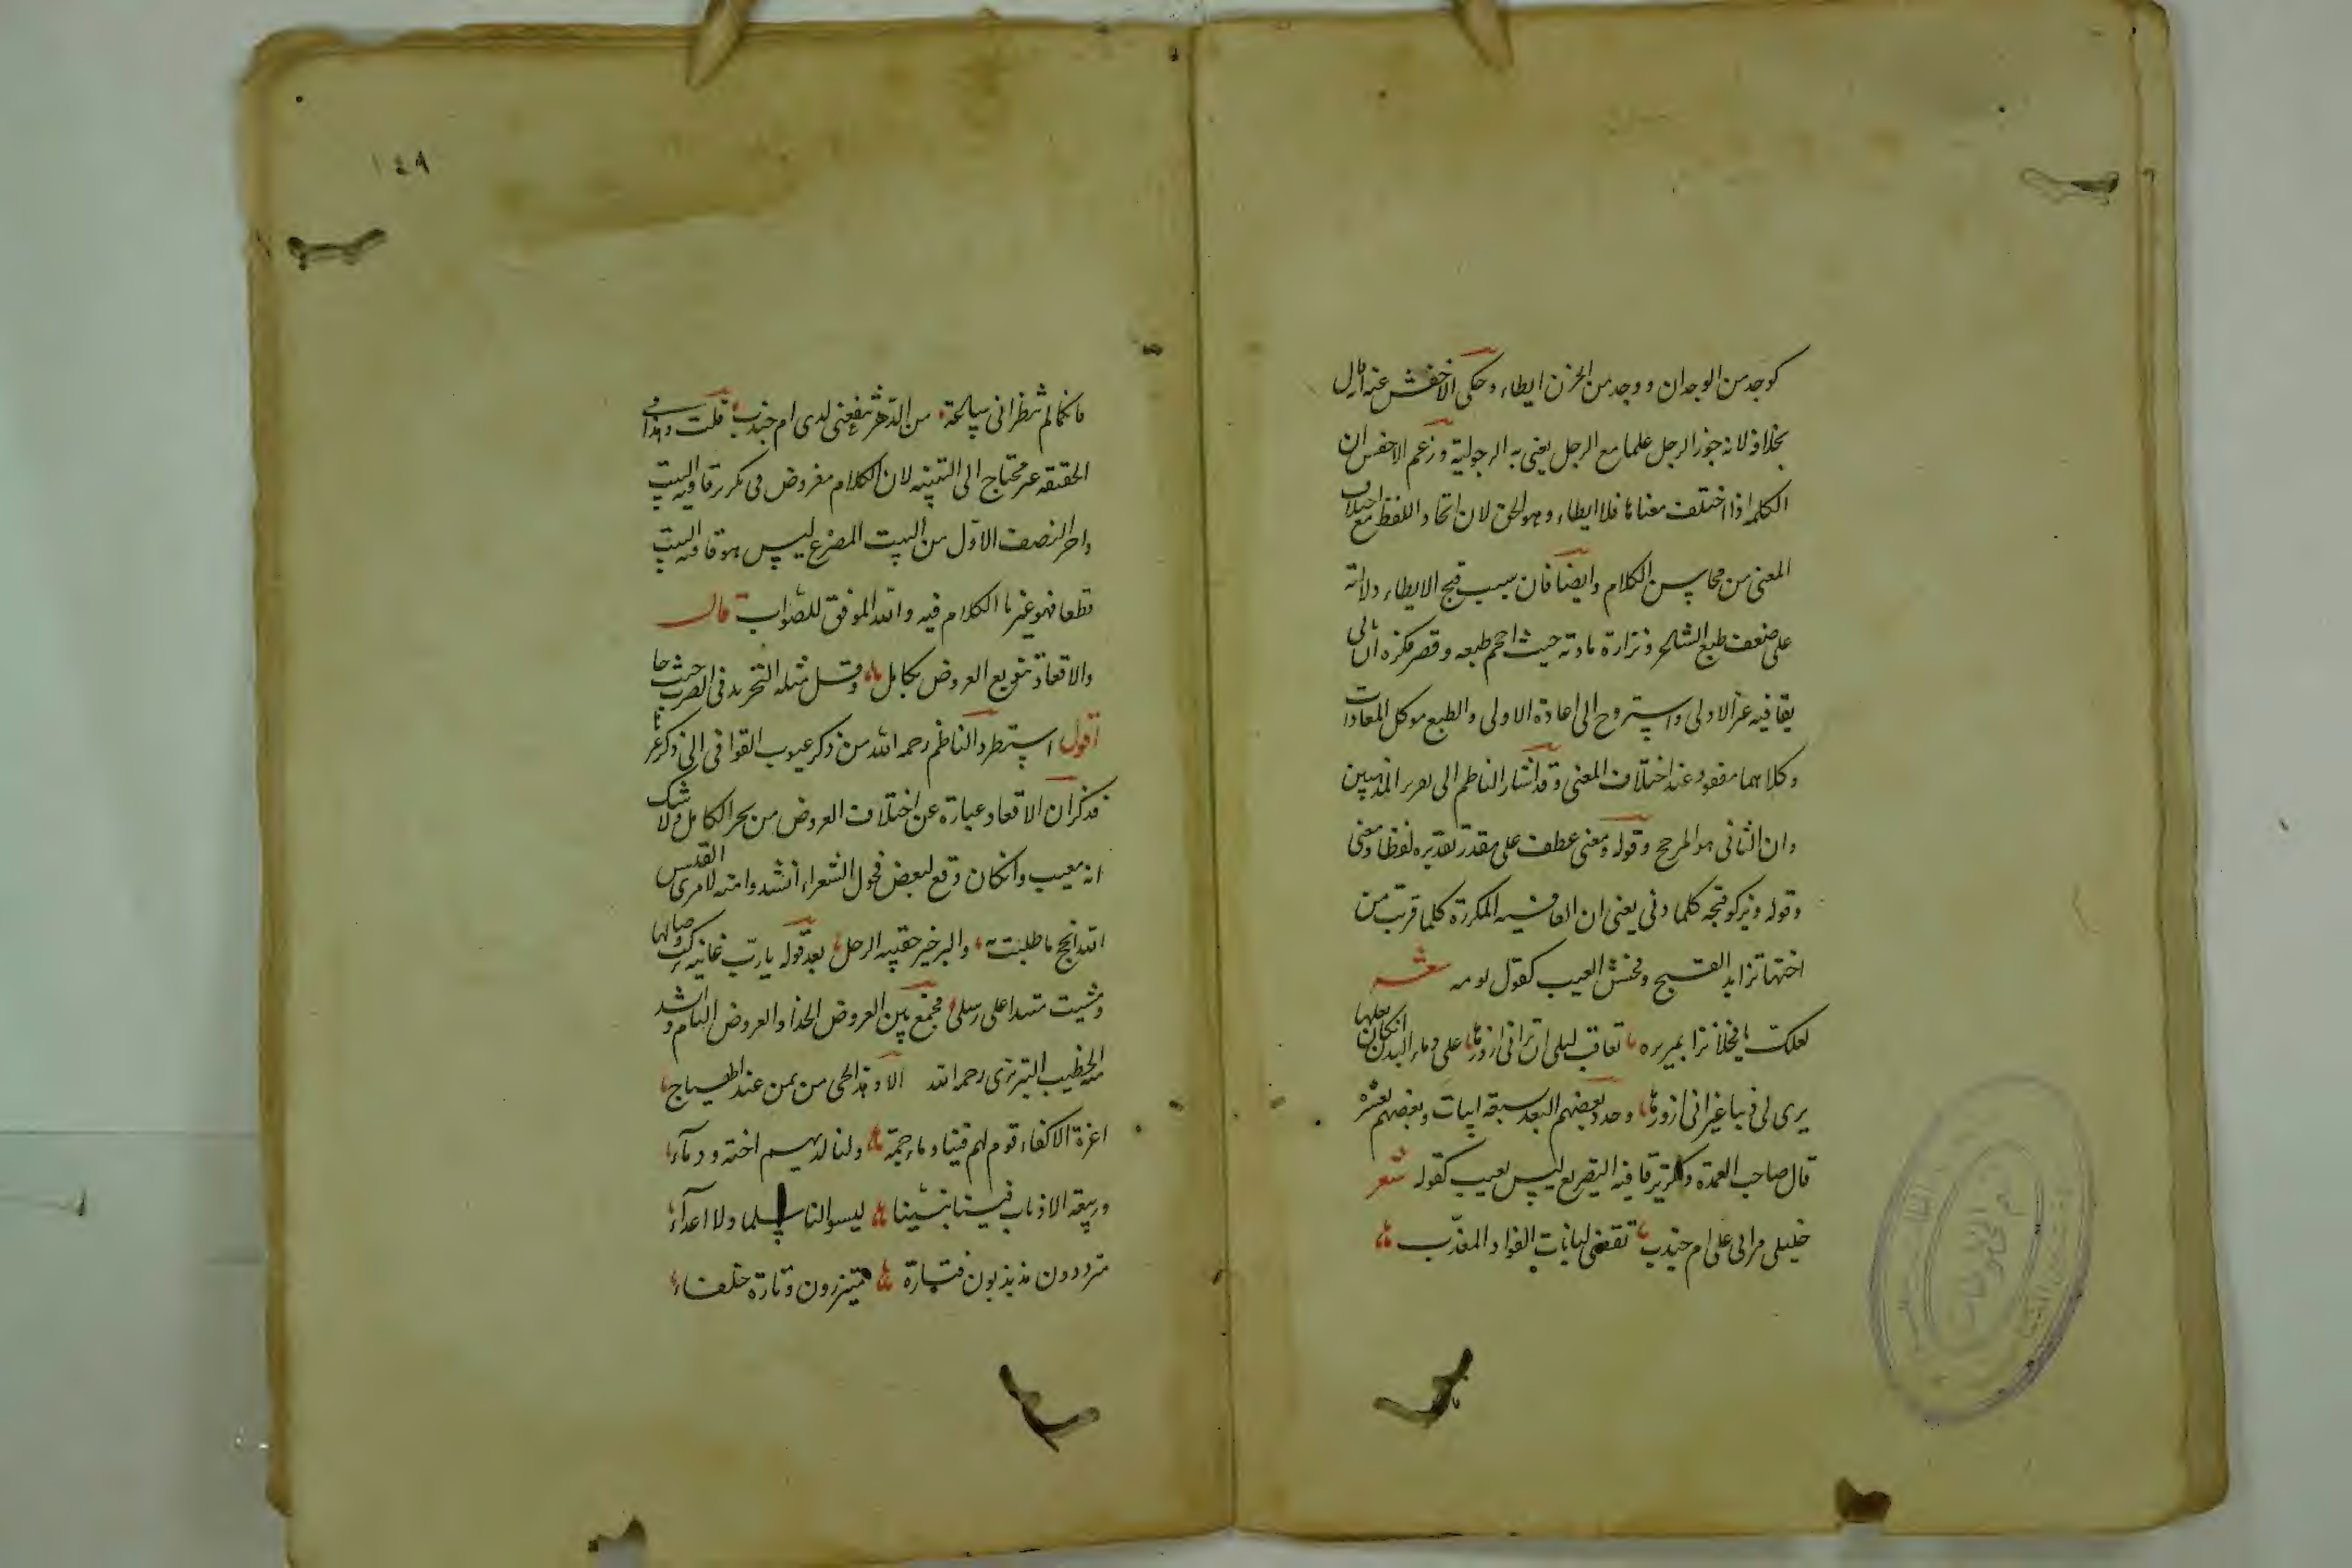 كوجد من الوجدان ووجد من الحزن ايطاء وحكى الاخفش عنه انه قال
بخلافه لانه جوز الرجل علما مع الرجل يعنى به الرجولية وزعم الاخفش ان
الكلمه اذا اختلف معناها فلا ايطاء وهو الحق لان اتحاد اللفظ مع اختلاف
المعنى من محاسن الكلام وايضا فان سبب قبح الايطاء دلالته
على ضعف طبع الشاعر ونزارة مادته حيث احجم طبعه وقصر فكره ان ياتى
بقافيه غير الاولى واستروح الى اعادة الاولى والطبع موكل المعادات
وكلاهما مفقود عند اختلاف المعنى وقد اشار الناظم الى المذهبين
وان الثانى هو المرجح وقوله ومعنى عطف على مقدر تقديره لفظا ومعنى
وقوله ويزكو قبحه كلما دنى يعنى ان القافيه المكررة كلما قرب من
اختها تزايد القبيح وفحش العيب كقول توبه شعر
لعلك يا فحلا نزا بمريره تعاقب ليلى ان ترانى ازورها على دماء البدن ان كان بعلها
يرى لى ذنبا غير انى ازورها وحدد بعضهم البعد بسبعة ابيات وبعضهم بعشره
قال صاحب العمدة وتكرير قافيه التصريع ليس بعيب كقوله شعر
خليلى مرا بى على ام جندب تقضى لبانات الفواد المعذب
١٤٩
فانكما لم تنظرانى ساعة من الدهر تنفعنى لدى ام جندب قلت وهذا فى
الحقيقه غير محتاج الى التنبيه لان الكلام مفروض فى تكرير قافيه البيت
واخر النصف الاول من البيت المصرع ليس هو قافيه البيت
قطعا فهو غير ما الكلام فيه والله الموفق للصواب قال
والاقعاد تنويع العروض بكامل وقل مثله التحريد فى الضرب حيث جا
اقول استطرد الناظم رحمه الله من ذكر عيوب القوافى الى ذكر غيرها
فذكر ان الاقعاد عبارة عن اختلاف العروض من بحر الكامل ولا شك
انه معيب وان كان وقع لبعض فحول الشعراء انشدوا منه لامرى القيس
الله انجح ما طلبت به والبر خير حقيبه الرحل بعد قوله يا رب غانيه تركت وصالها
ومشيت متئدا على رسلى فجمع بين العروض الحذا والعروض التام وانشد
منه الخطيب التبريزى رحمه الله الا وهذا الحى من يمن عند الهياج
اعزة الاكفاء قوم لهم فينا دماء جمة ولنا لديهم احنة ودماء
وربيعة الاذناب فيما بيننا ليسوا لنا سلما ولا اعداء
مترددون مذبذبون فتارة متنزرون وتارة حلفاء